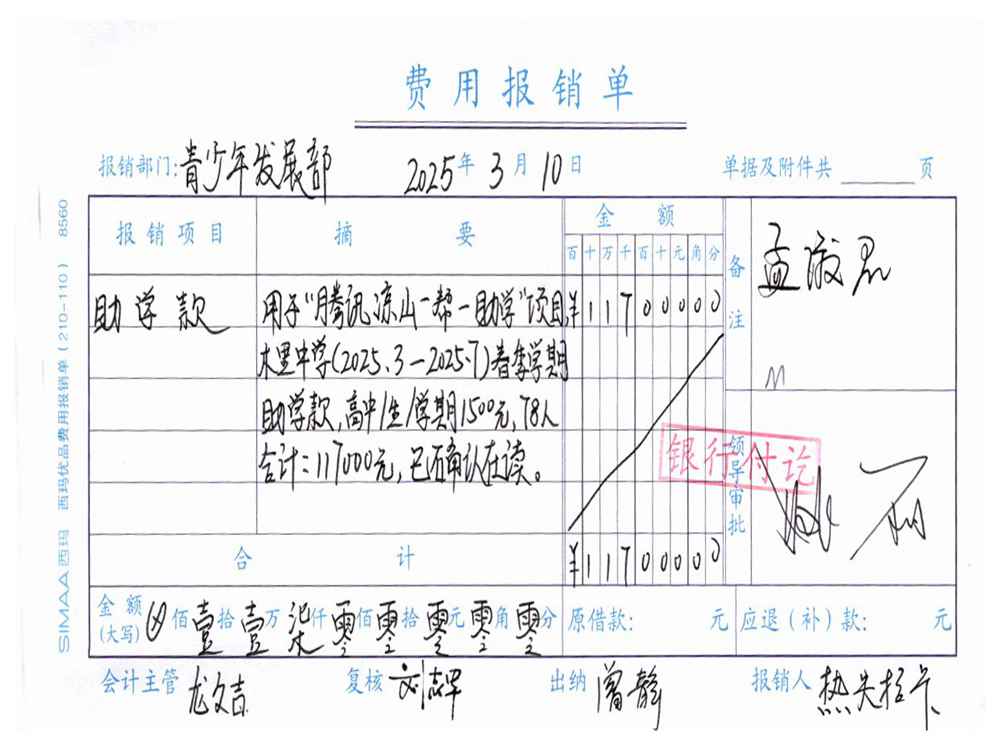 费用报销单
报销部门:青少年发展部 2025年3月10日 单据及附件共 页
报销项目 摘要 金额 备注
百十万千百十元角分
助学款 用于"腾讯凉山一帮一助学"项目, ¥11700000
木里中学(2025.3-2025.7)春季学期
助学款,高中/生/学期1500元,78人
合计:117000元,已确认在读。
银行付讫
领导审批
合计 ¥11700000
金额(大写) 佰壹拾壹万柒仟零佰零拾零元零角零分 原借款: 元 应退(补)款: 元
会计主管 龙文吉 复核 刘志罕 出纳 曾静 报销人 热夫拉卡
SIMAA西玛 西玛优品费用报销单(210-110) 8560